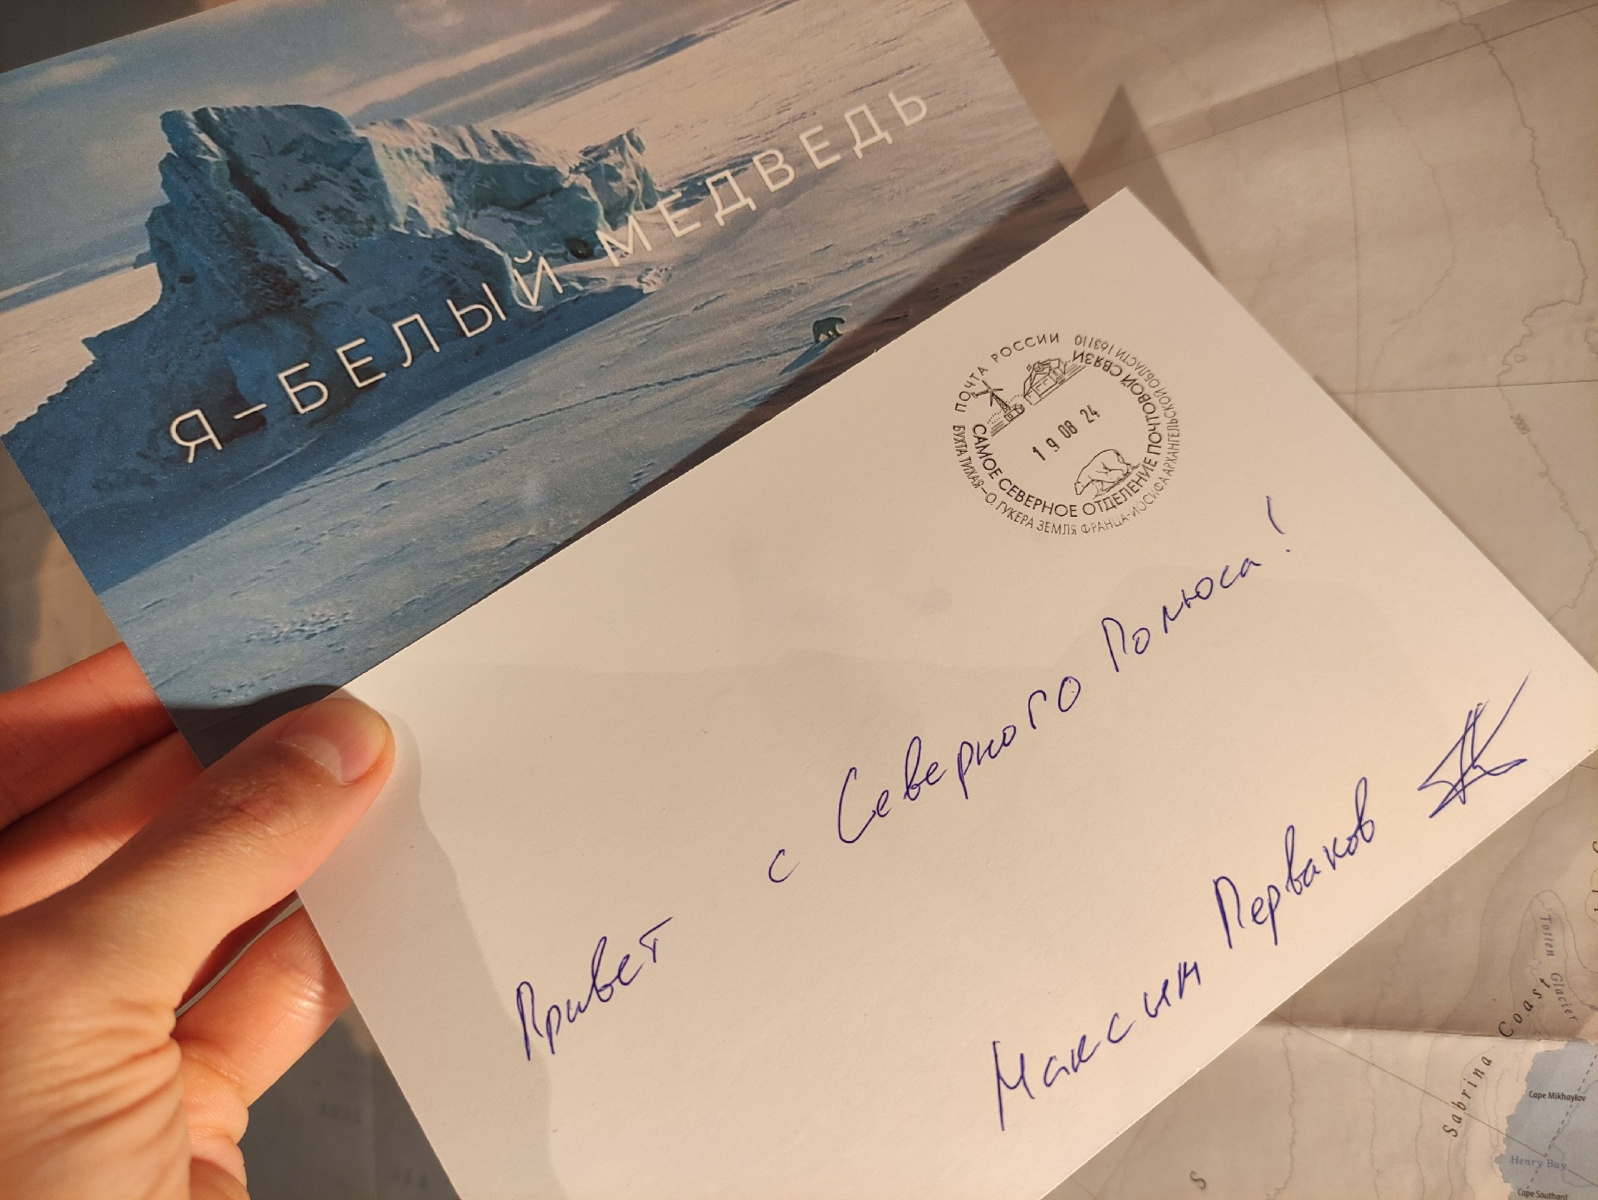 Я – БЕЛЫЙ МЕДВЕДЬ
ПОЧТА РОССИИ
БУХТА ТИХАЯ – О. ГУКЕРА ЗЕМЛЯ ФРАНЦА-ИОСИФА АРХАНГЕЛЬСКОЙ ОБЛАСТИ 163110
САМОЕ СЕВЕРНОЕ ОТДЕЛЕНИЕ ПОЧТОВОЙ СВЯЗИ
19 08 24
Привет с Северного Полюса!
Максим Перваков
Totten Glacier
Sabrina Coast
Cape Mikhaylov
Henry Bay
Cape Southard